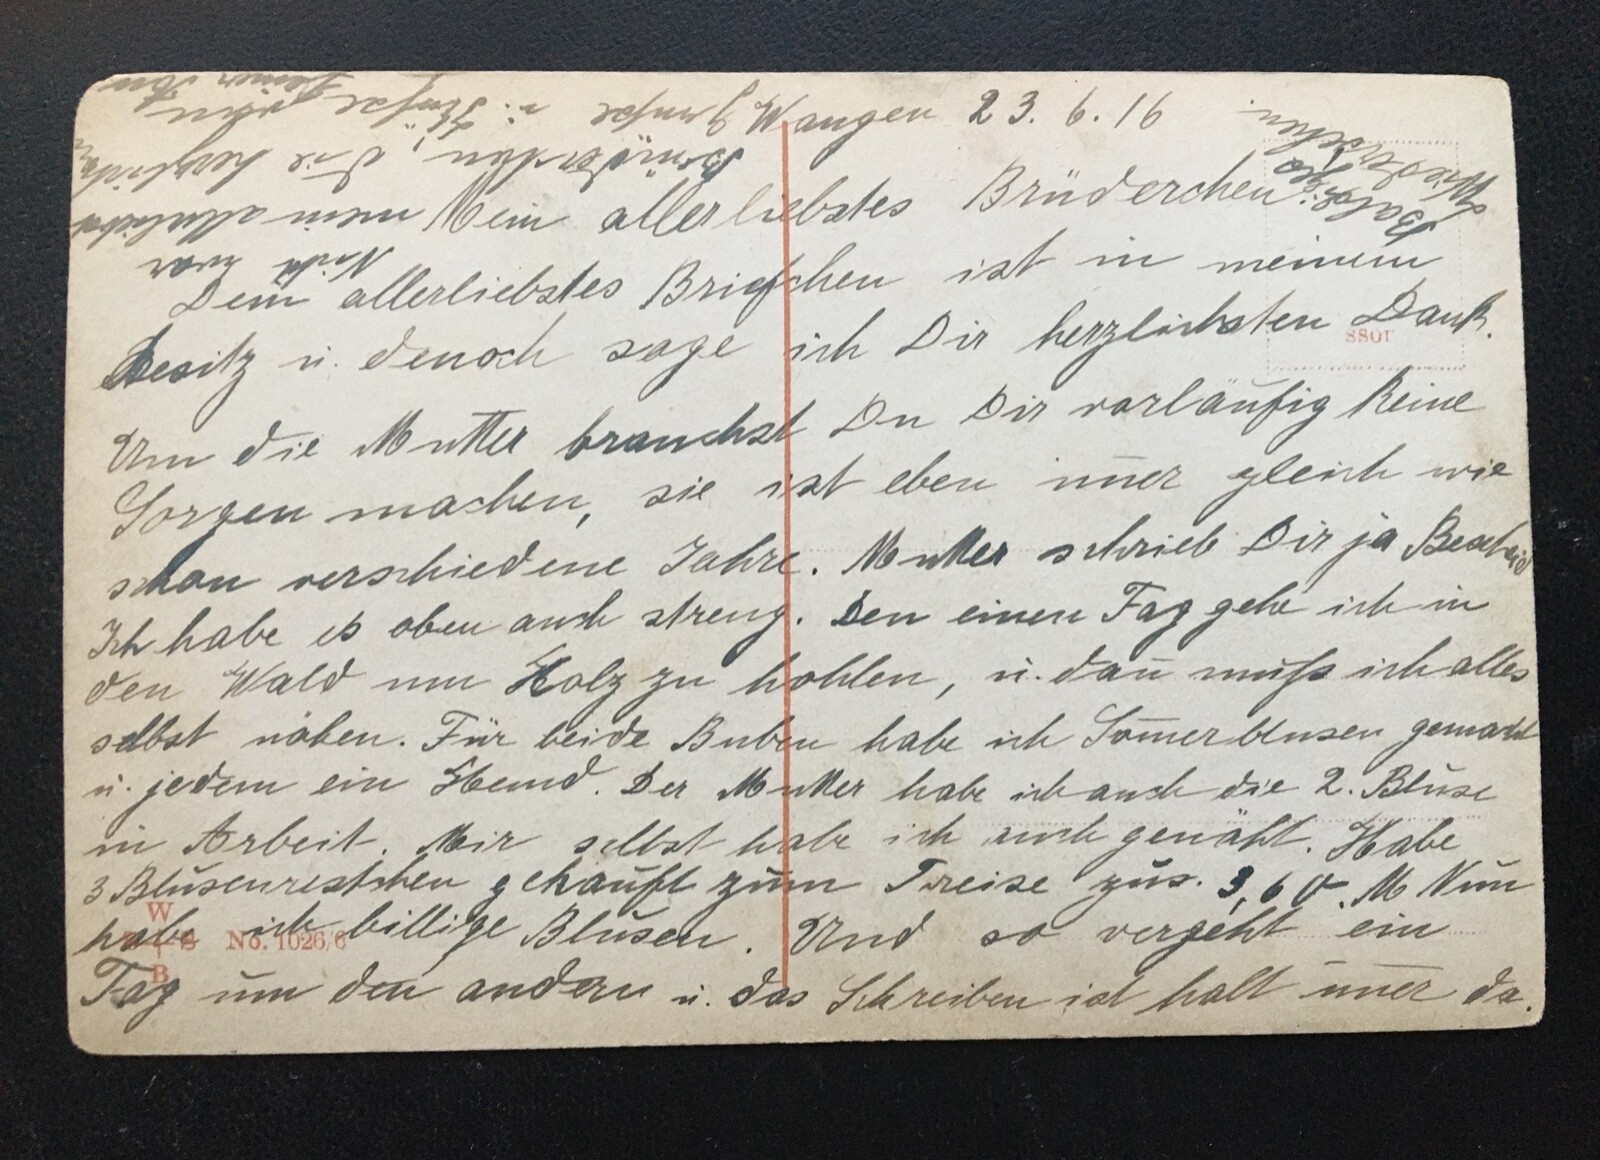 Wangen 23. 6. 16
Mein allerliebstes Brüderchen
Dein allerliebstes Briefchen ist in meinem
Besitz u. denoch sage ich Dir herzlichsten Dank.
Um die Mutter brauchst Du Dir vorläufig keine
Sorgen machen, sie ist eben im̅er gleich wie
schon verschiedene Jahre. Mutter schrieb Dir ja Bescheid
Ich habe es oben auch streng. Den einen Tag gehe ich in
den Wald um Holz zu hohlen, u. dan̅ muß ich alles
selbst nähen. Für beide Buben habe ich Som̅erblusen gemacht
u. jedem ein Hemd. Der Mutter habe ich auch die 2. Bluse
in Arbeit. Mir selbst habe ich auch genäht. Habe
3 Blusenrestchen gekauft zum Preise zus. 3,60 M Nun
habe ich billige Blusen. Und so vergeht ein
Tag um den andern u. das Schreiben ist halt im̅er da.
Noch zwar
mein allerliebstes
Brüderchen, die herzlichsten
Grüße u. Küsse von
Deiner
Baldiges
Wiedersehen.
W
B
No. 1026/6